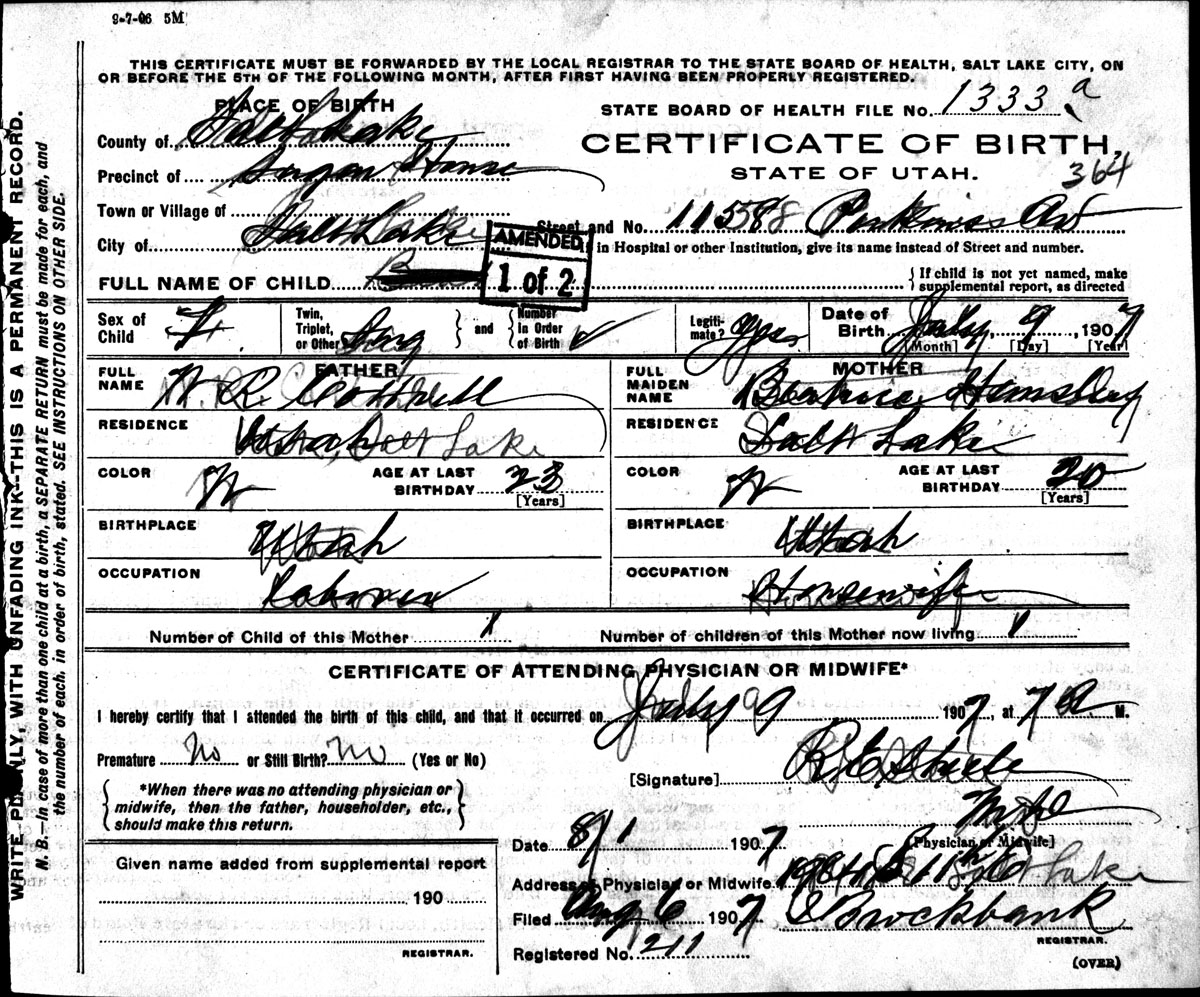 9-7-06 5M
THIS CERTIFICATE MUST BE FORWARDED BY THE LOCAL REGISTRAR TO THE STATE BOARD OF HEALTH, SALT LAKE CITY, ON
OR BEFORE THE 5TH OF THE FOLLOWING MONTH, AFTER FIRST HAVING BEEN PROPERLY REGISTERED.
PLACE OF BIRTH
STATE BOARD OF HEALTH FILE No. 1333 a
County of Salt Lake
CERTIFICATE OF BIRTH,
Precinct of Sugar House
STATE OF UTAH.
364
Town or Village of
Street and No. Av
City of Salt Lake
in Hospital or other Institution, give its name instead of Street and number.
AMENDED
1 of 2
FULL NAME OF CHILD
If child is not yet named, make
supplemental report, as directed
Sex of Child F
Twin, Triplet, or Other Sing and Number in Order of Birth
Legitimate? Yes
Date of Birth July 9, 1907
[Month] [Day] [Year]
FATHER
MOTHER
FULL NAME W. R. Cottrell
FULL MAIDEN NAME Beatrice Hemsley
RESIDENCE Utah, Salt Lake
RESIDENCE Salt Lake
COLOR W AGE AT LAST BIRTHDAY 23 [Years]
COLOR W AGE AT LAST BIRTHDAY 20 [Years]
BIRTHPLACE Utah
BIRTHPLACE Utah
OCCUPATION Laborer
OCCUPATION Housewife
Number of Child of this Mother 1
Number of children of this Mother now living 1
CERTIFICATE OF ATTENDING PHYSICIAN OR MIDWIFE*
I hereby certify that I attended the birth of this child, and that it occurred on July 9 1907, at 7 A. M.
Premature No or Still Birth? No (Yes or No)
[Signature] Steele
*When there was no attending physician or
midwife, then the father, householder, etc.,
should make this return.
[Physician or Midwife]
Date 8/1 1907
Given name added from supplemental report
Address of Physician or Midwife Salt Lake
190
Filed Aug 6 1907 Brockbank
REGISTRAR.
REGISTRAR.
Registered No. 211
(OVER)
WRITE PLAINLY, WITH UNFADING INK--THIS IS A PERMANENT RECORD.
N. B.—In case of more than one child at a birth, a SEPARATE RETURN must be made for each, and
the number of each, in order of birth, stated. SEE INSTRUCTIONS ON OTHER SIDE.